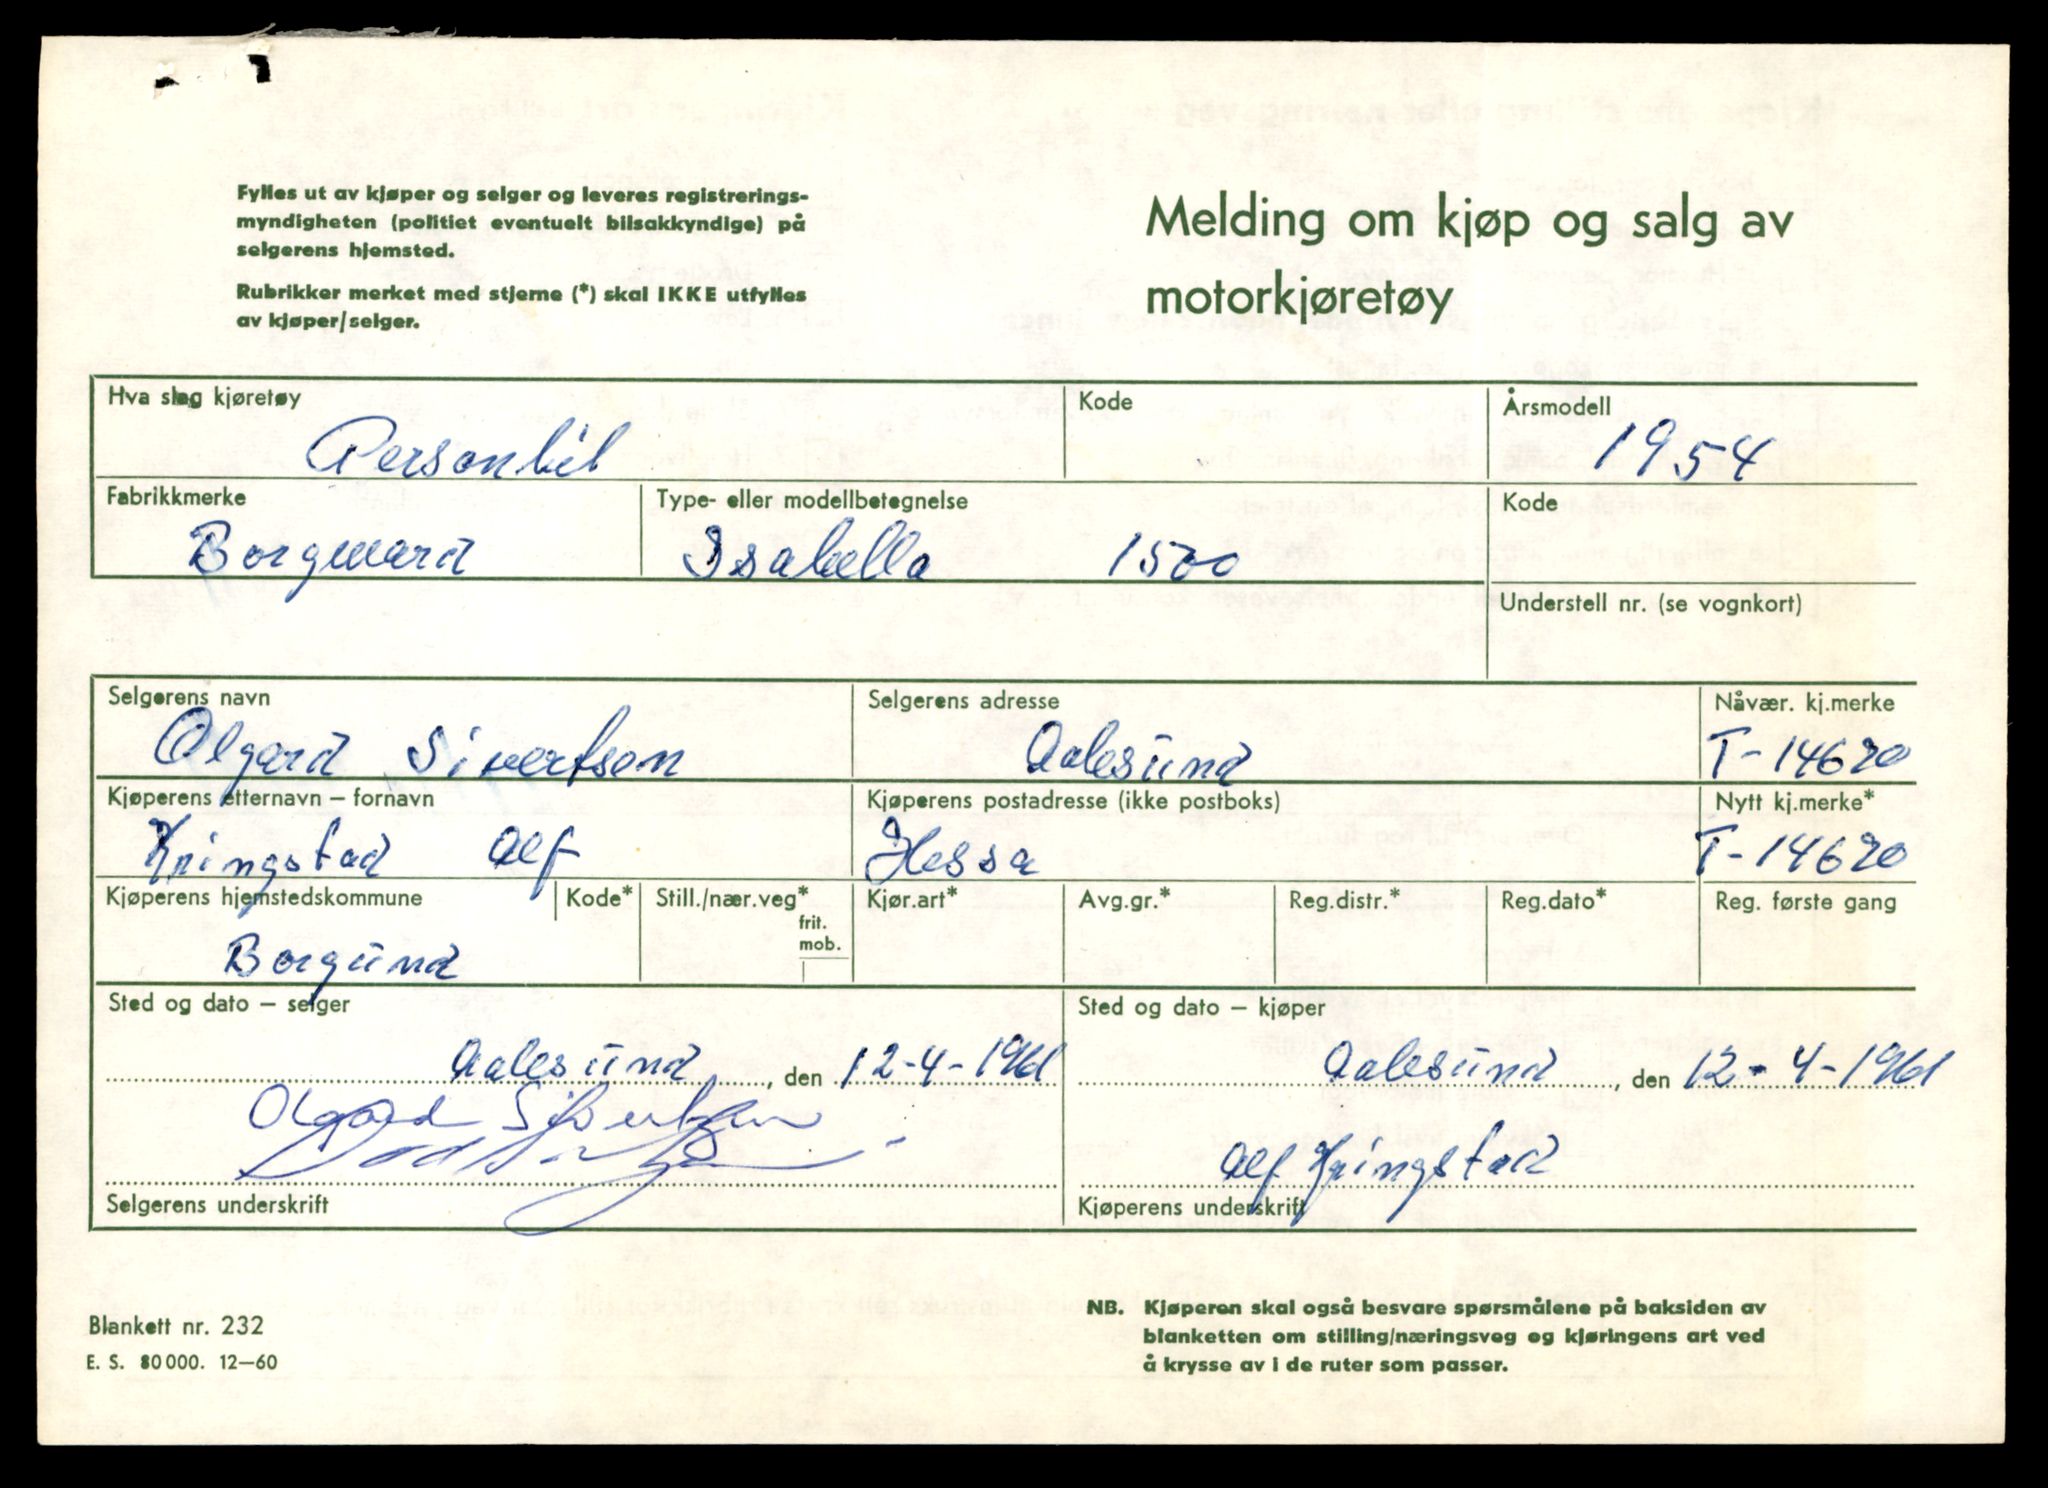 Fylles ut av kjøper og selger og leveres registrerings-
myndigheten (politiet eventuelt bilsakkyndige) på
selgerens hjemsted.
Rubrikker merket med stjerne (*) skal IKKE utfylles
av kjøper/selger.
Melding om kjøp og salg av
motorkjøretøy
Hva slag kjøretøy
Kode
Årsmodell
Personbil
1954
Fabrikkmerke
Type- eller modellbetegnelse
Kode
Borgward
Isabella 1500
Understell nr. (se vognkort)
Selgerens navn
Selgerens adresse
Nåvær. kj.merke
Olgard Sivertsen
Aalesund
T-14620
Kjøperens etternavn – fornavn
Kjøperens postadresse (ikke postboks)
Nytt kj.merke*
Kringstad Alf
Hessa
T-14620
Kjøperens hjemstedskommune
Kode*
Still./nær.veg*
frit.
mob.
Kjør.art*
Avg.gr.*
Reg.distr.*
Reg.dato*
Reg. første gang
Borgund
Sted og dato – selger
Sted og dato – kjøper
Aalesund, den 12-4-1961
Aalesund, den 12-4-1961
Olgard Sivertsen
Alf Kringstad
Selgerens underskrift
Kjøperens underskrift
Blankett nr. 232
E. S. 80 000. 12–60
NB. Kjøperen skal også besvare spørsmålene på baksiden av
blanketten om stilling/næringsveg og kjøringens art ved
å krysse av i de ruter som passer.